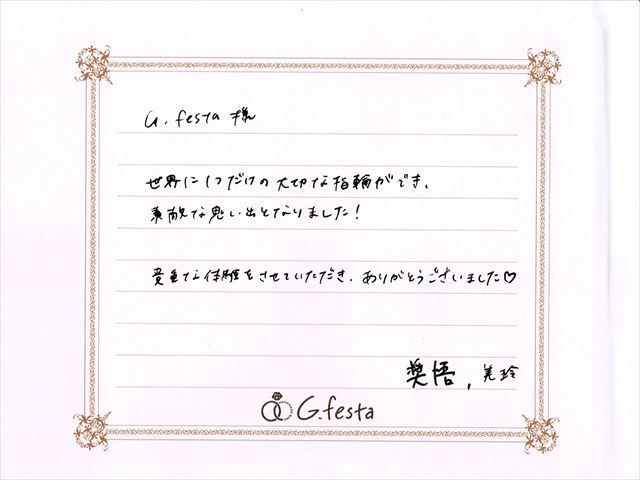 G.festa 様
世界に1つだけの大切な指輪ができ、
素敵な思い出となりました!
貴重な体験をさせていただき、ありがとうございました♡
奨悟, 美玲
G.festa